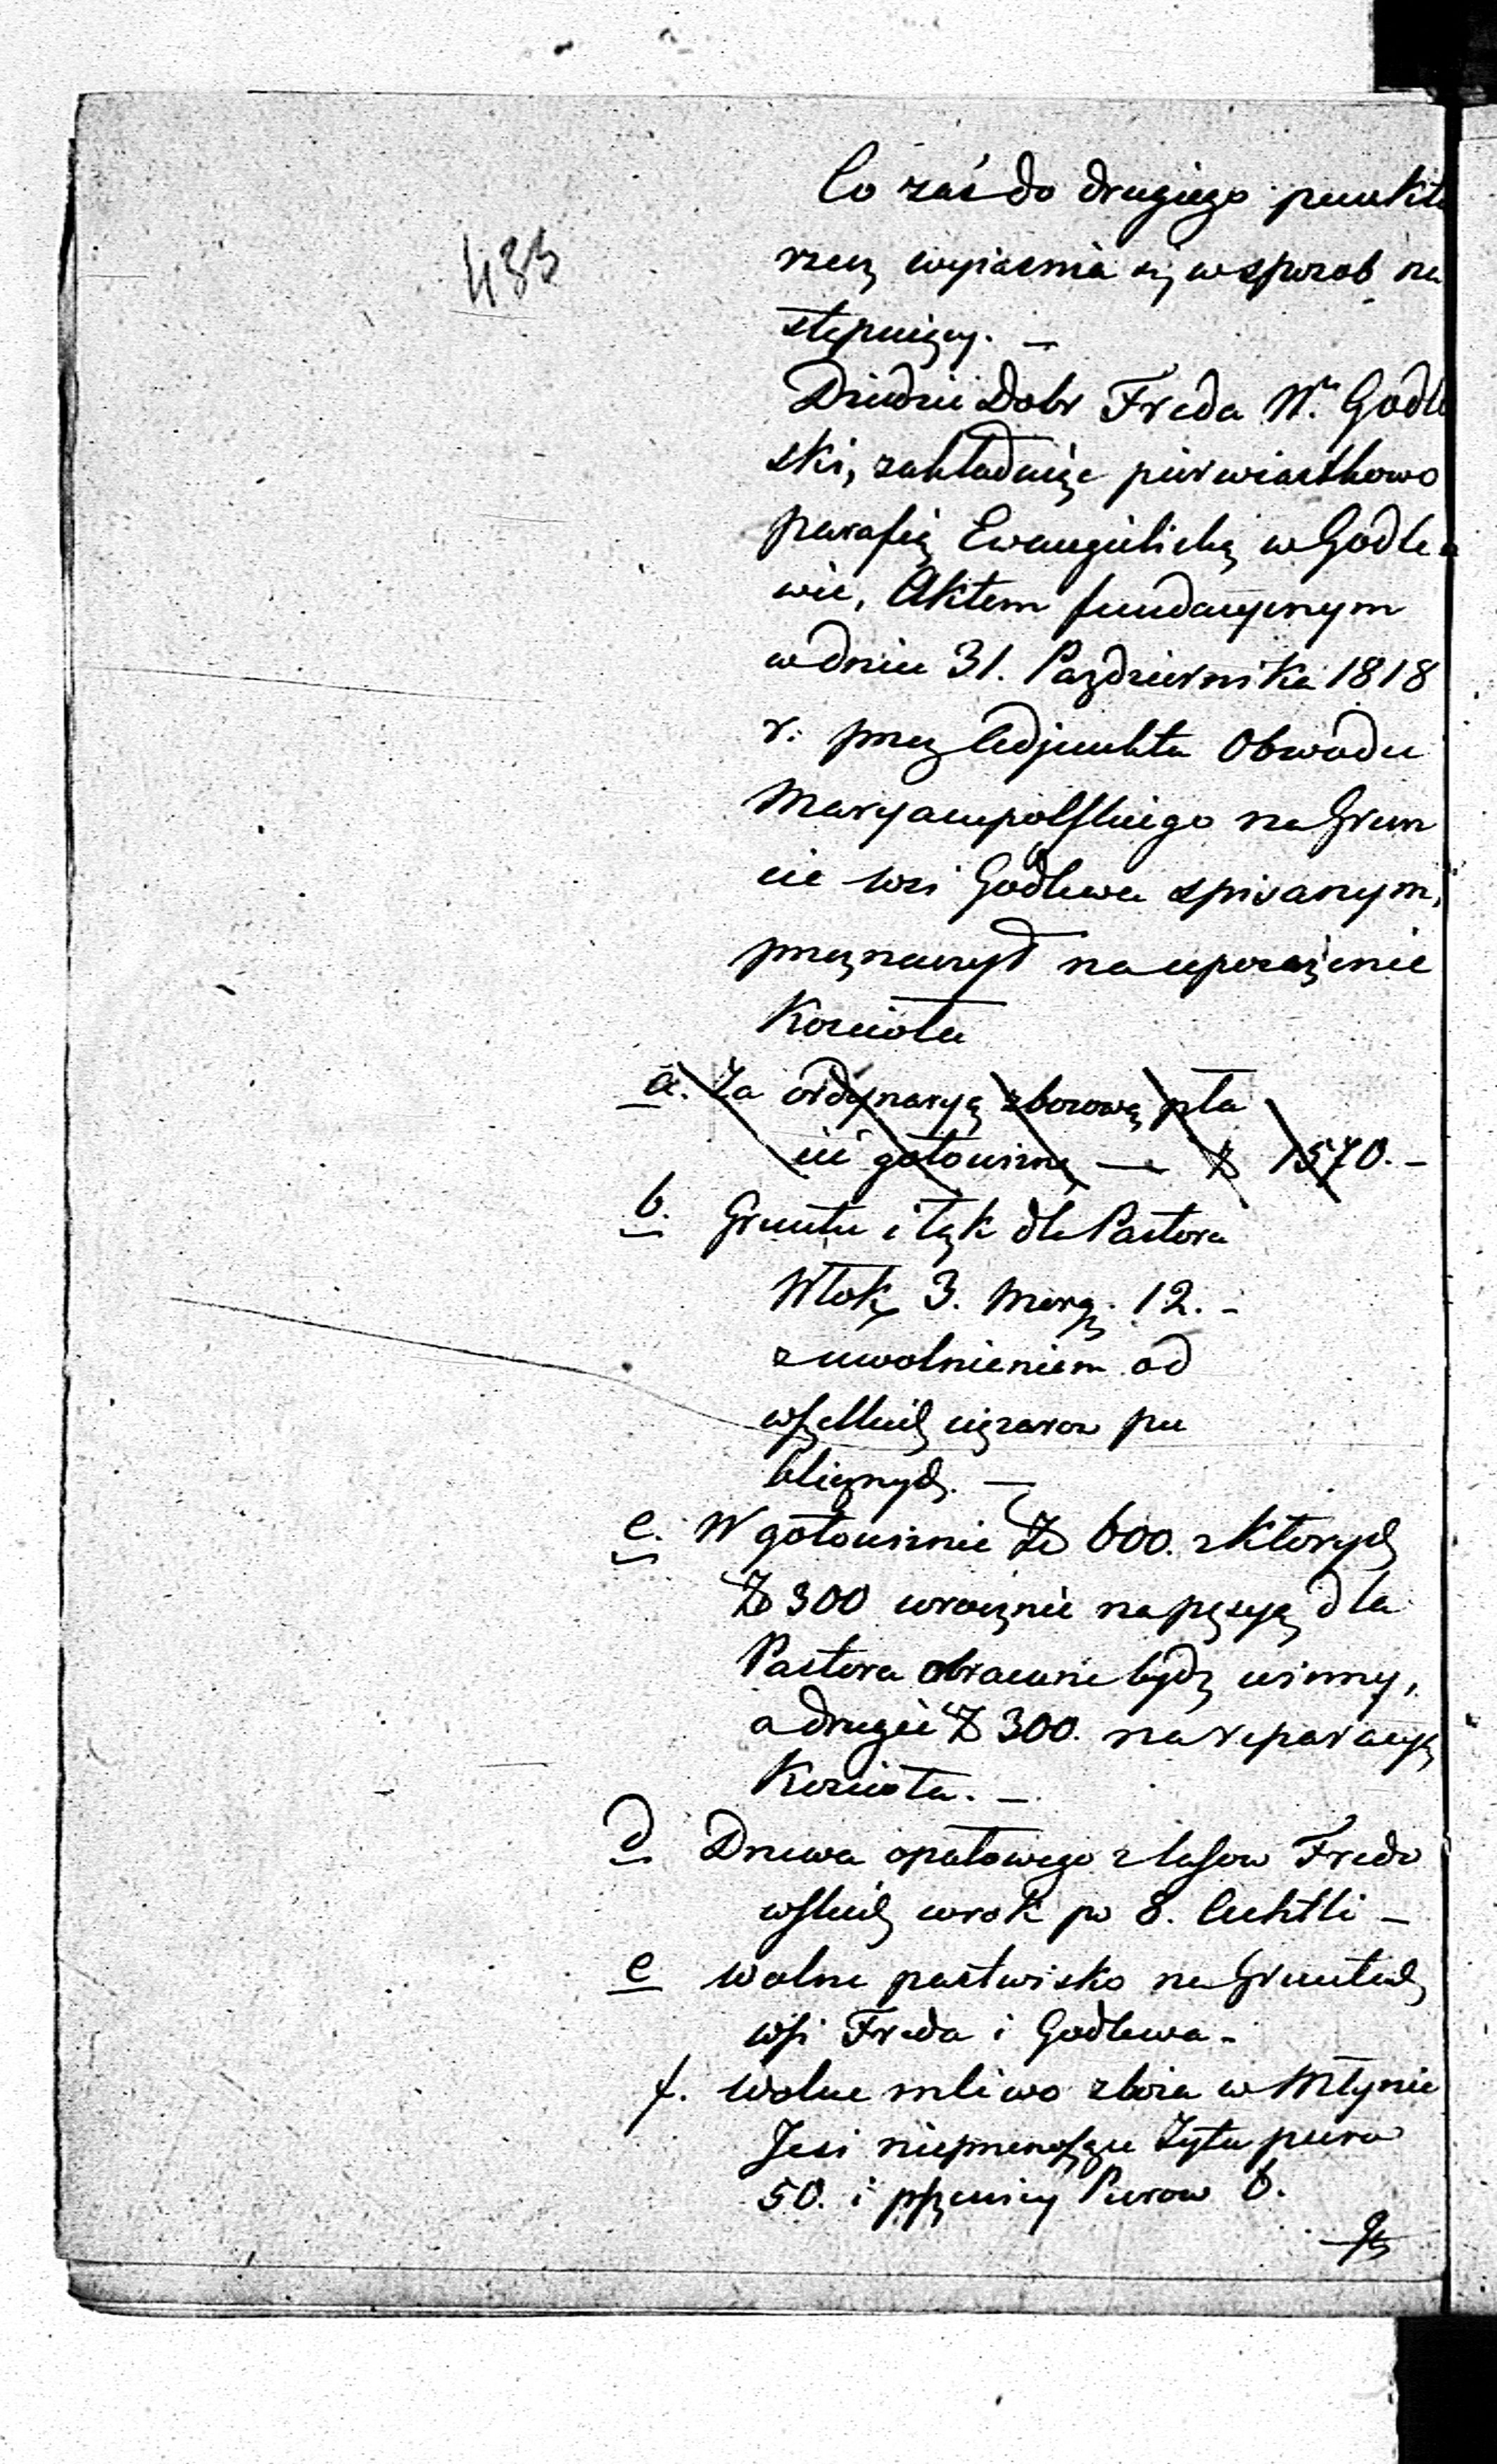 433
Co zaś do drugiego punktu
rzecz wyiasnia się w sposob na
stępuiący. —
Dziedzic Dobr Freda Wn Godle
ski, zakładaiąc pierwiastkowo
parafią Ewangielicką w Godle
wie, Aktem fundacyinym
w dniu 31. Pazdziernika 1818
r. przez Adjunkta Obwodu
Maryampolskiego na Grun
cie wsi Godlewa spisanym,
przeznaczył na uposażenie
Kościoła
a. Za ordynaryą zborową pła
cić gotowizną — Zł 1570. —
b. Gruntu i łąk dla Pastora
Włok 3. Morg. 12. —
z uwolnieniem od
wszelkich ciężarow pu
blicznych. —
c. W gotowiznie Zł 600. z ktorych
Zł 300 corocznie na pęsyą dla
Pastora obracane bydź winny,
a drugie Zł 300. na reparacyą
Kościoła. —
d. Drzewa opałowego z lasow Fredo
wskich co rok po 8. Cuhtli —
e wolne pastwisko na Gruntach
wsi Freda i Godlewa —
f. wolne mliwo zboża w Młynie
Jesi nieprzenoszące Żyta pura
50. i pszenicy Purow 6.